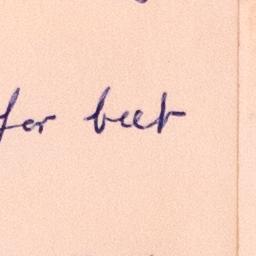 for beet